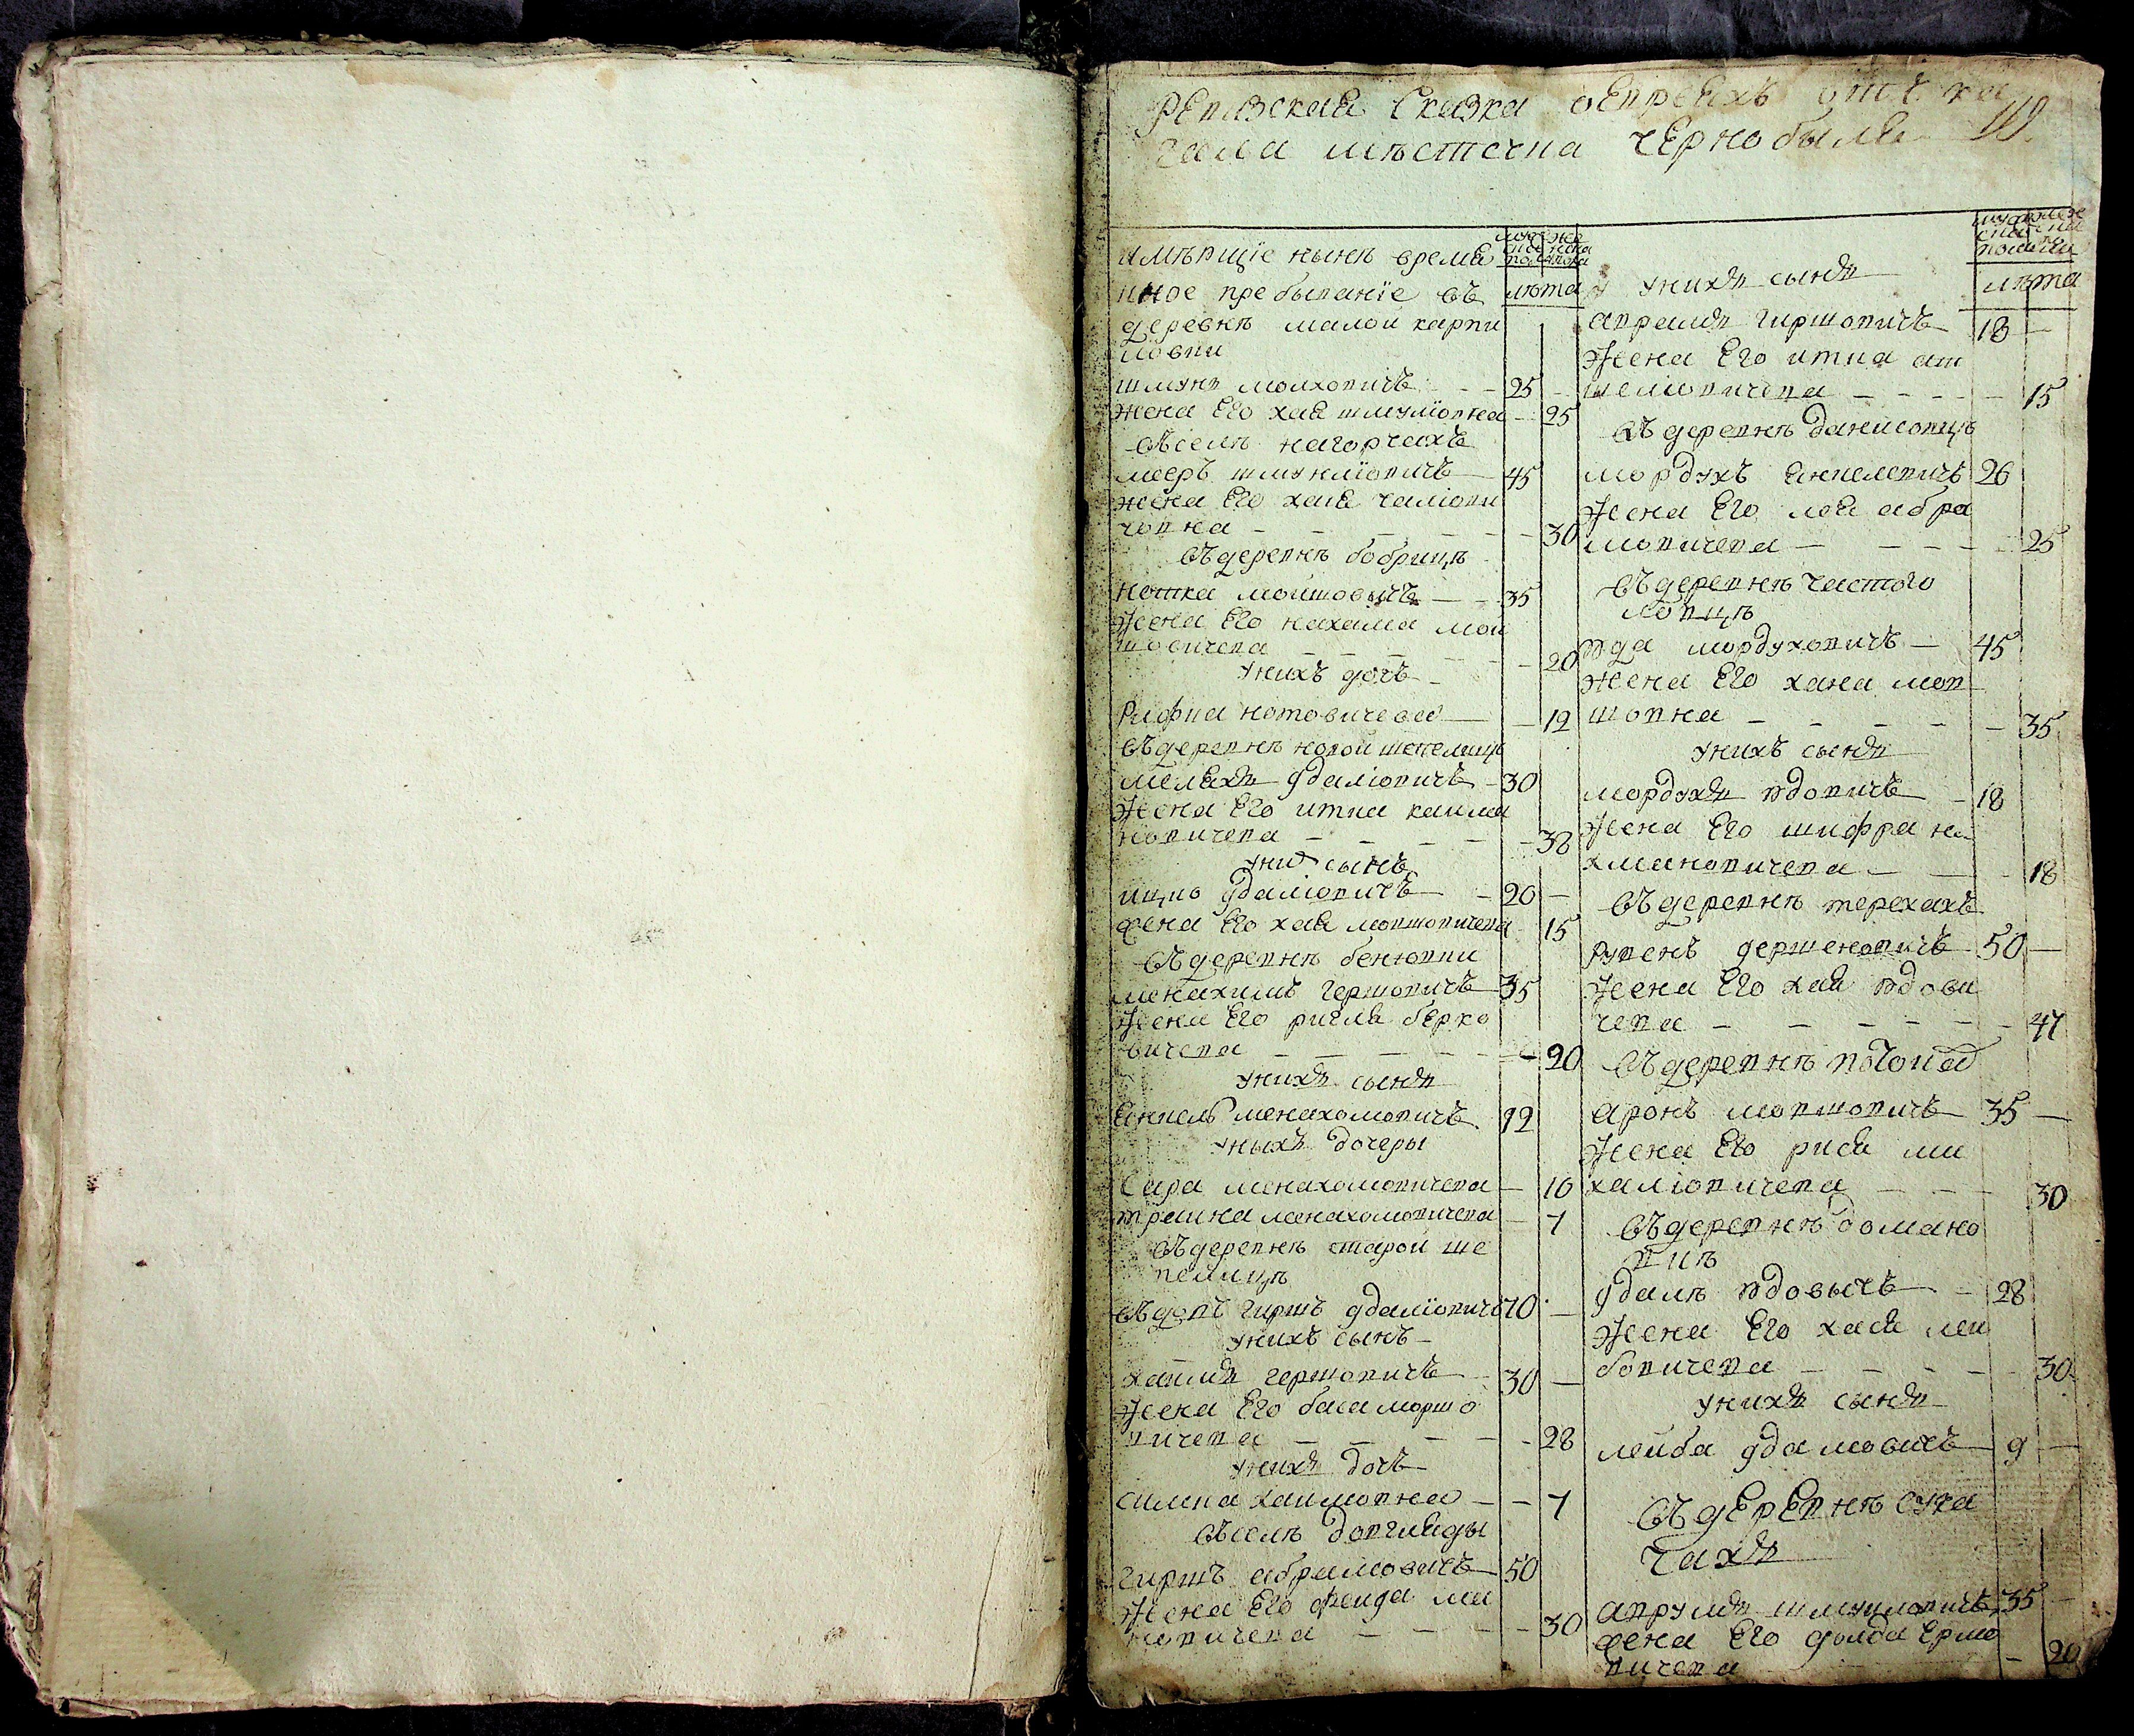 Ревизская Сказка о Евреяхъ
гала мѣстечка чернобыля
имѣющіе нынѣ време
нное пребываніе въ
лѣта
деревнѣ малой карпи
ловки
25
жена Его хая шмулiовна 25
Въ селѣ нагорчахъ
мееръ шмуклiовичъ 45
жена Его хая
30
Въ деревнѣ бобрицѣ
мошковичъ 35
Жена Его нахама мош
ковичева 20
у нихъ дочь
Рифка 12
Въ деревнѣ новой шепелицѣ
удалiовичъ 30
Жена Его итка кайма
новичева 38
у них сынъ
ицко удалiовичъ 20
жена Его хая мовшовичева 15
Въ деревнѣ бенювки
менахимъ гершовичъ 35
Жена Его ригля берко
вичева 20
у нихъ сынъ
Янкель менахомовичъ 12
у ныхъ дочеры
Сара менахомовичева 10
трайна менахомовичева 7
Въ деревнѣ старой ше
пелицѣ
Вдовъ гиршъ удалiовичъ 70
у нихъ сынъ
хаимъ гершовичъ 30
Жена Его бася моршо
вичева 28
у нихъ дочь
симка хаимовна 7
Въ селѣ довгляды
гиршъ абрамовичъ 50
Жена Его фейга ми
30
у нихъ сынъ
лѣта
аврамъ гиршовичъ 18
Жена Его итка
15
Въ деревнѣ данисовицѣ
мордухъ Янкелевичъ 26
Жена Его лея абра
мовичева 25
Въ деревнѣ чистого
ловцѣ
юда мордуховичъ 45
жена Его хана мов
шовна 35
у нихъ сынъ
мордухъ юдовичъ 18
Жена Его шифра на
хмановичева 18
Въ деревнѣ терехахъ
рувенъ 50
Жена Его хая юдови
чева 47
Въ деревнѣ
аронъ мовшовичъ 35
Жена Его рися ми
халiовичева 30
Въ деревнѣ домано
вкѣ
удаль юдовычъ 28
Жена Его хася лей
бовичева 30
у нихъ сынъ
лейба удаловичъ 9
Въ деревнѣ сука
чахъ
аврумъ шмуиловичъ 35
жена Его голда Ершо
вичева 20